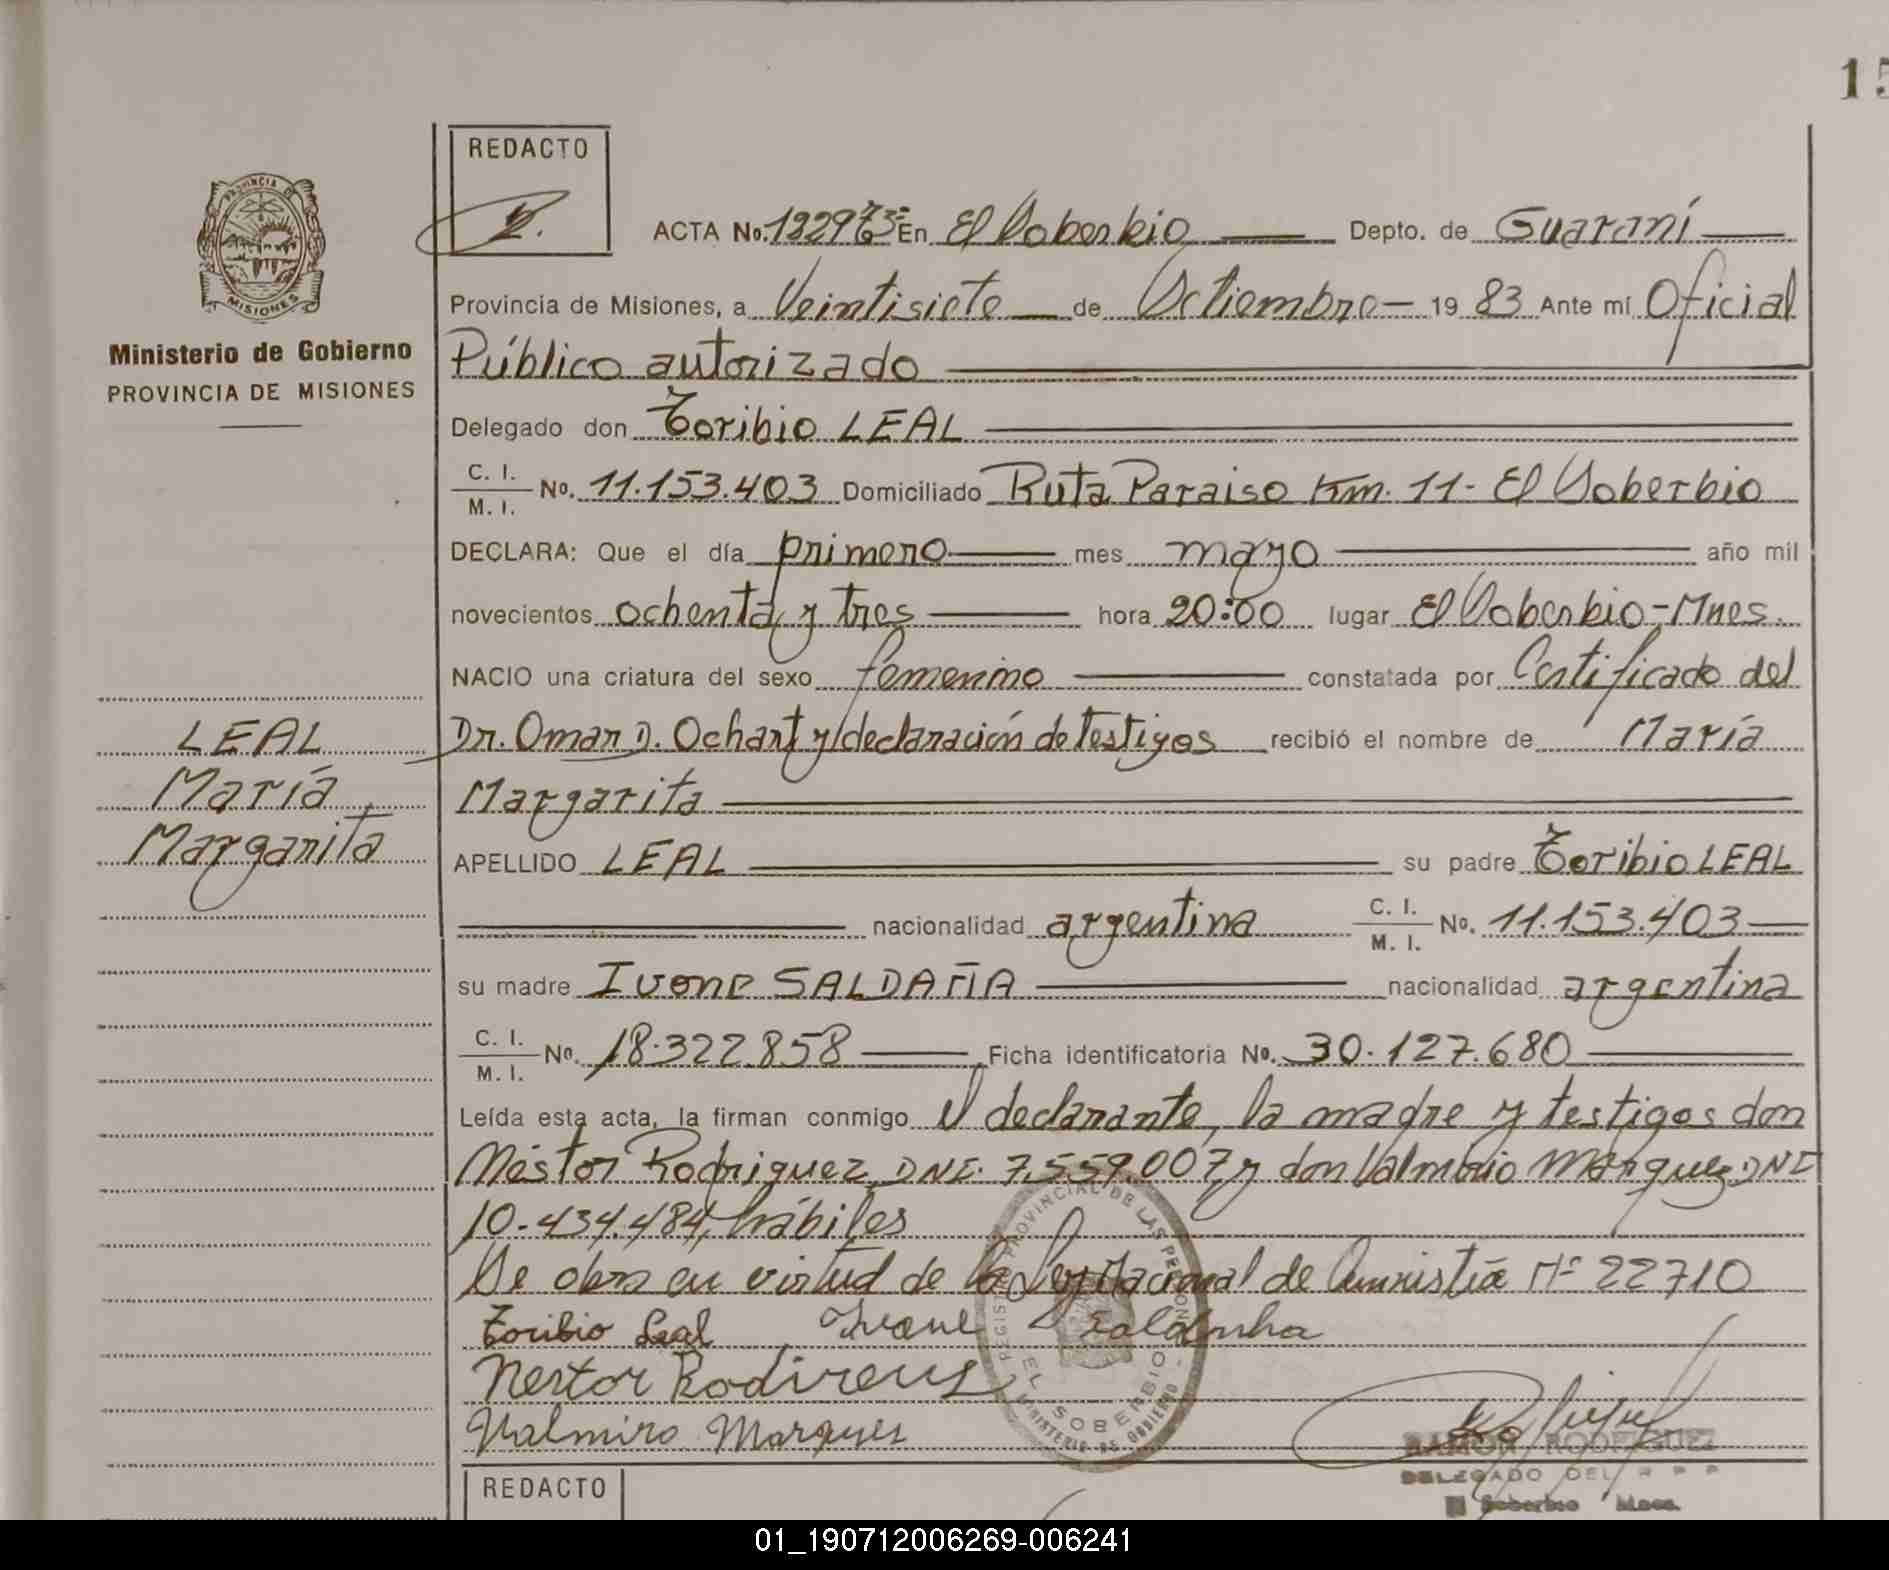 15
REDACTO
PROVINCIA DE
MISIONES
Ministerio de Gobierno
PROVINCIA DE MISIONES
ACTA No. En El Soberbio Depto. de Guaraní
Provincia de Misiones, a Veintisiete de Octiembre 19 83 Ante mí Oficial
Público autorizado
Delegado don Toribio LEAL
C. I.
M. I. No. 11.153.403 Domiciliado Ruta Paraiso Km. 11- El Soberbio
DECLARA: Que el día primero mes mayo año mil
novecientos ochenta y tres hora 20:00 lugar El Soberbio-Mnes.
NACIO una criatura del sexo femenino constatada por Certificado del
Dr. Omar D. Ochart y declaración de testigos recibió el nombre de María
Margarita
LEAL
María
Margarita
APELLIDO LEAL su padre Toribio LEAL
nacionalidad argentina C. I. M. I. No. 11.153.403
su madre Ivone SALDAÑA nacionalidad argentina
C. I.
M. I. No. 18.322.858 Ficha identificatoria No. 30.127.680
Leída esta acta, la firman conmigo el declarante, la madre y testigos don
Néstor Rodriguez DNI. 7.559.007 y don Valmirio Marquez DNI
10.434.484, hábiles
Se obra en virtud de la Ley Nacional de Amnistía Nº 22710
Toribio Leal Ivone Saldanha
Nestor
Valmiro Marques
REGISTRO PROVINCIAL DE LAS PERSONAS
EL SOBERBIO
MINISTERIO DE GOBIERNO
RAMON RODRIGUEZ
DELEGADO DEL R P P
El Soberbio Mnes.
REDACTO
01_190712006269-006241